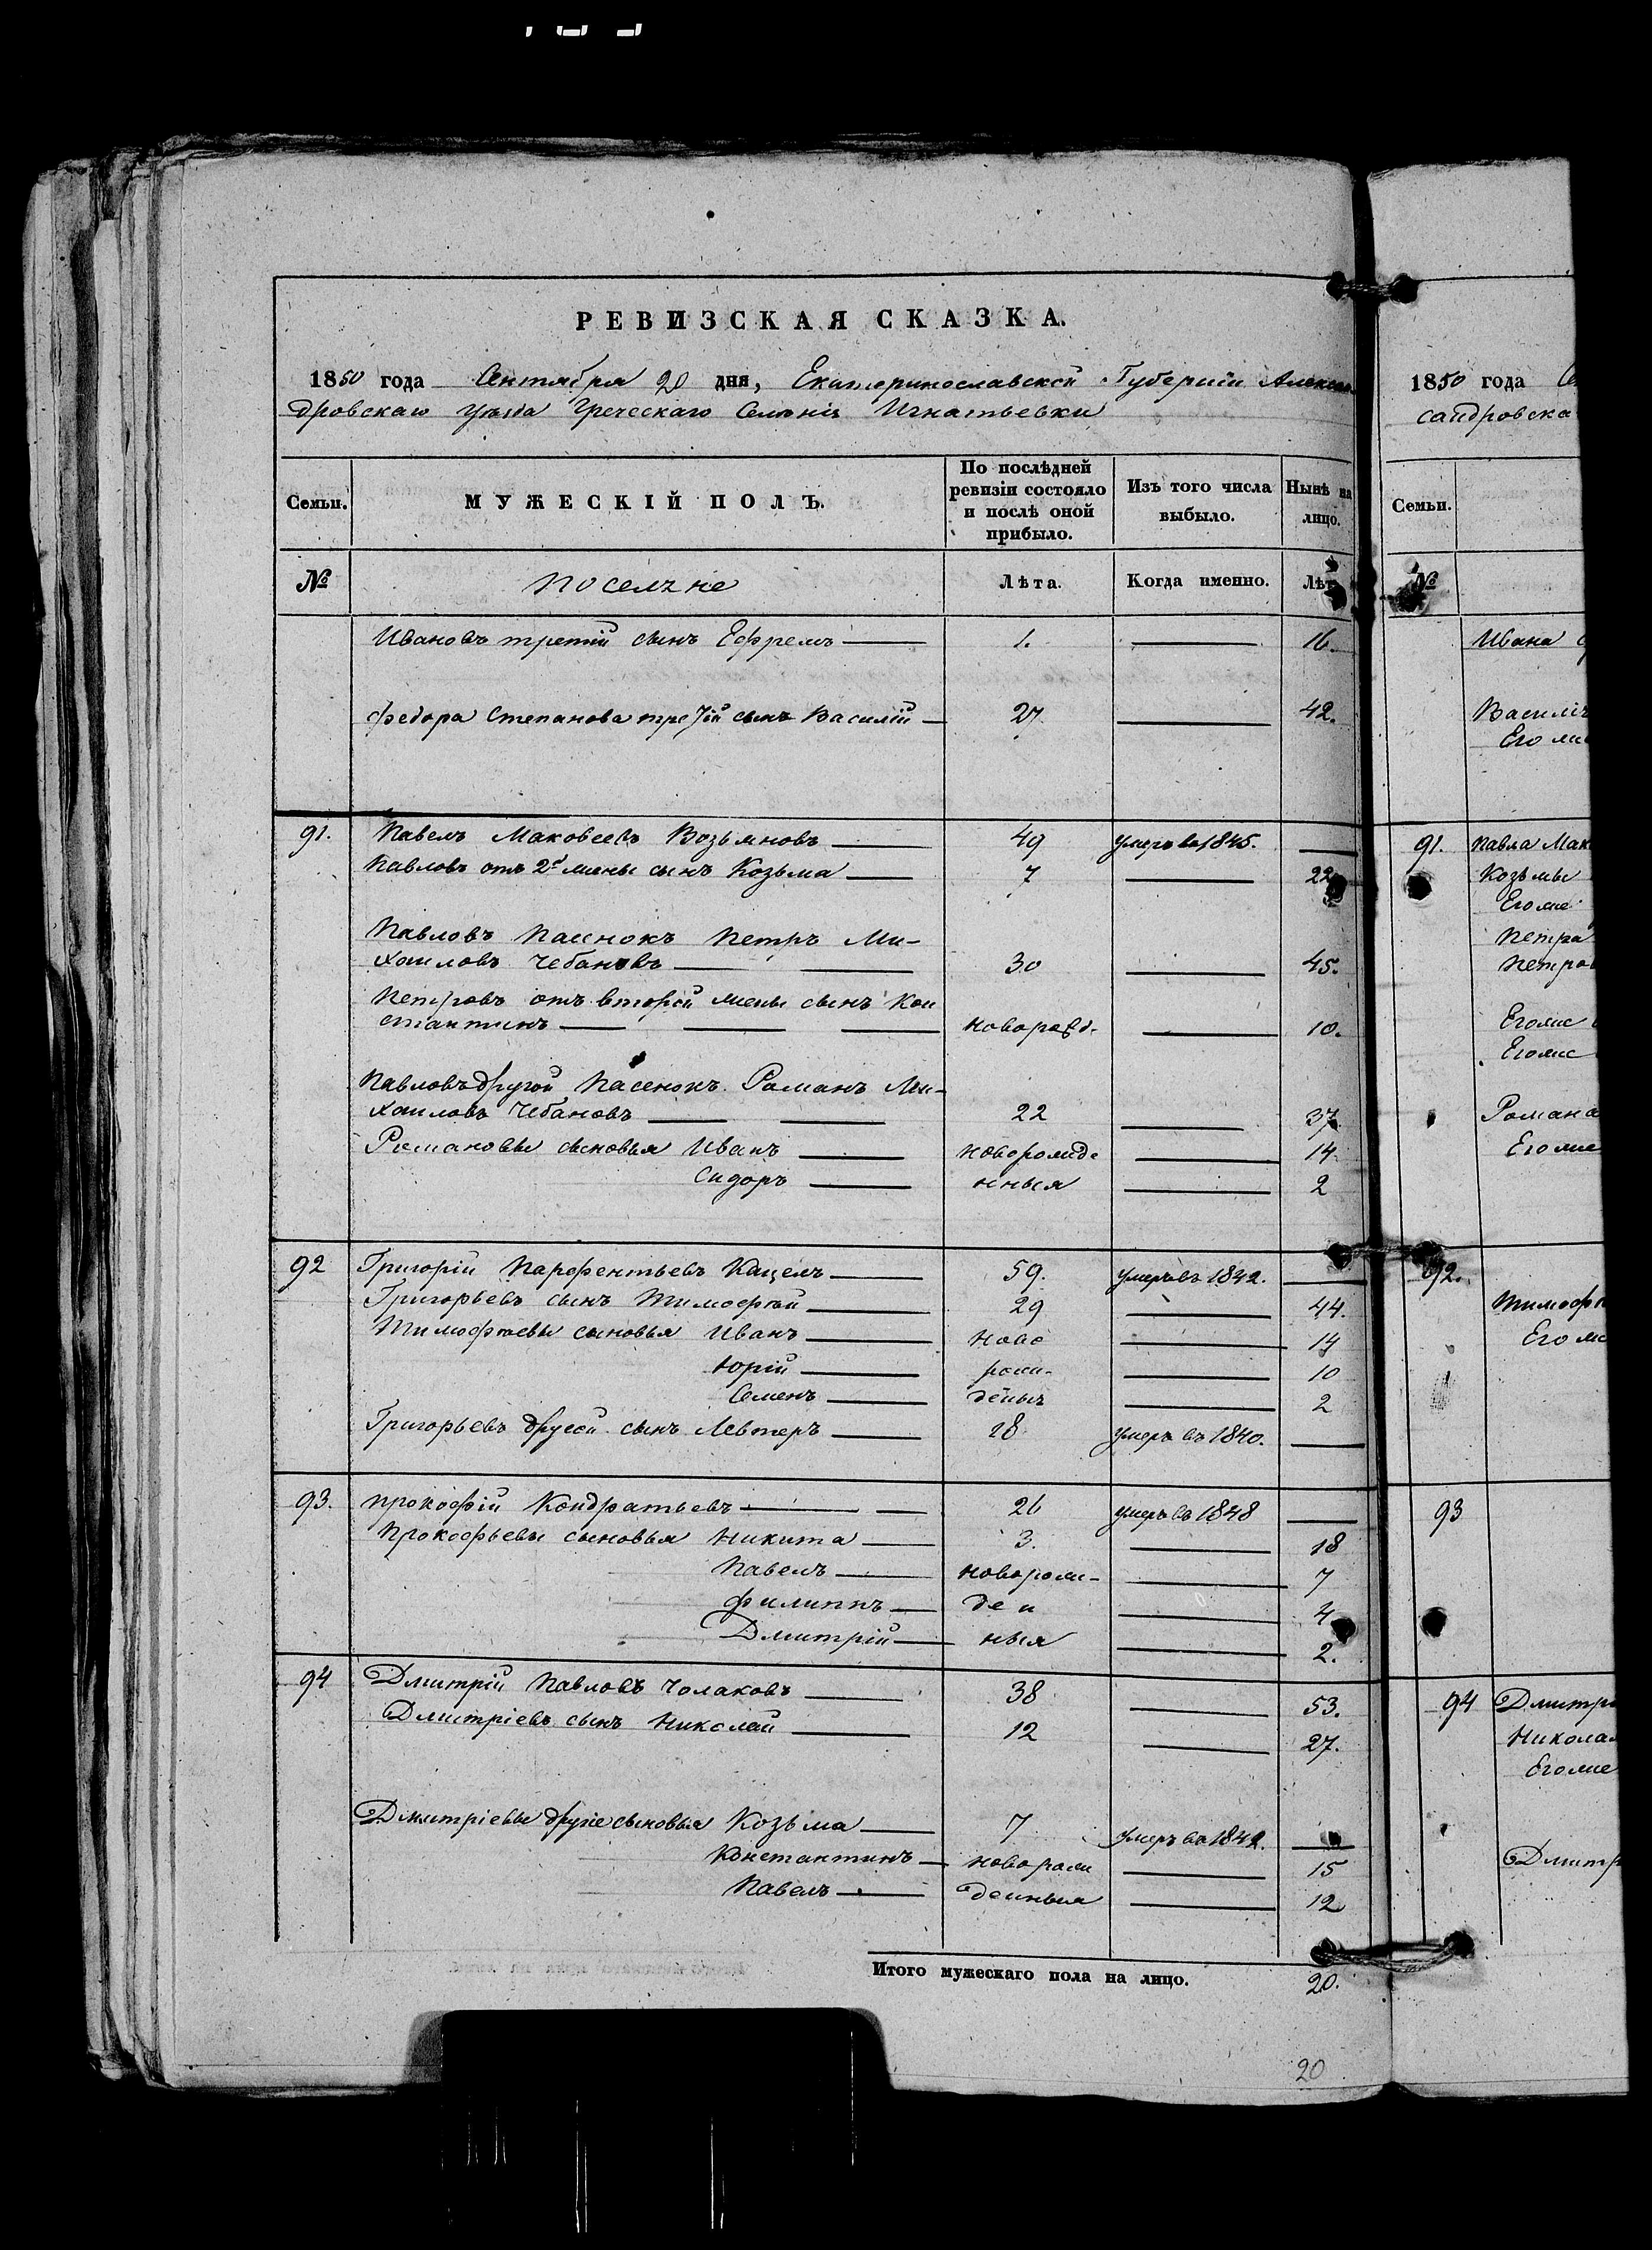 РЕВИЗСКАЯ СКАЗКА.
1850 года Сентября 20 дня, Екатеринославской Губернии Алексан
дровскаго Уѣзда Греческаго Селенія Игнатьевки
Семьи.
МУЖЕСКІЙ ПОЛЪ.
По послѣдней ревизіи состояло и послѣ оной прибыло.
Изъ того числа выбыло.
Нынѣ на лицо.
№ Поселяне Лѣта. Когда именно. Лѣт
Ивановъ третій сынъ Ефремъ 1. 16.
Федора Степанова третій сынъ Василій 27 42.
91. Павелъ Маковеевъ Возьяновъ 49 умеръ въ 1845.
Павловъ отъ 2й жены сынъ Козьма 7 22
Павловъ Пасынокъ Петръ Ми-
хаиловъ Чебановъ 30 45.
Петровъ отъ второй жены сынъ Кон
стантинъ новорожд. 10.
Павловъ другой Пасенокъ Романъ Ми-
хаиловъ Чебановъ 22 37.
Романовы сыновья Иванъ новорожде 14
Сидоръ нныя 2
92 Григорій Парфентьевъ Кацелъ 59. умеръ въ 1842.
Григорьевъ сынъ Тимофѣй 29 44.
Тимофѣевы сыновья Иванъ ново 14
Юрій рож- 10
Семенъ деныя 2
Григорьевъ другой сынъ Левтеръ 18 умеръ въ 1840.
93. Прокофій Кондратьевъ 26 умеръ въ 1848
Прокофьевы сыновья Никита 3. 18
Павелъ новорож- 7
Филиппъ ден 4
Дмитрій ныя 2.
94 Дмитрій Павловъ Чолаковъ 38 53.
Дмитріевъ сынъ Николай 12 27.
Дмитріевы другіе сыновья Козьма 7 умеръ въ 1842.
Константинъ новорож 15
Павелъ денныя 12
Итого мужескаго пола на лицо. 20.
20
1850 года Се
сандровска
Семьи.
№
Ивана
Василія
Его же
91. Павла Мак
Козьмы
Его же
Петра
Петров
Его же
Его же
Романа
Его же
92. Тимофѣ
Его же
93
94 Дмитрі
Никола
Его же
Дмитр